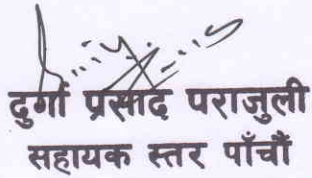 दुर्गा प्रसाद पराजुली
सहायक स्तर पाँचौं